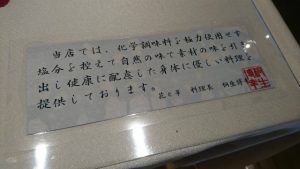 当店では、化学調味料を極力使用せず
塩分を控えて自然の味で素材の味を引き
出し健康に配慮した身体に優しい料理を
提供しております。
花と千 料理長